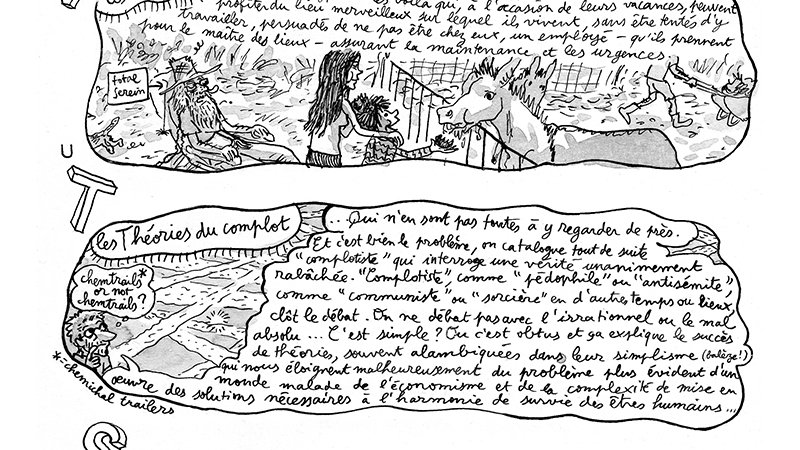 voilà qui, à l'occasion de leurs vacances, peuvent
profiter du lieu merveilleux sur lequel ils vivent, sans être tentés d'y
travailler, persuadés de ne pas être chez eux, un employé – qu'ils prennent
pour le maître des lieux – assurant la maintenance et les urgences.
total
serein
U
T
les Théories du complot
chemtrails*
or not
chemtrails?
... Qui n'en sont pas toutes à y regarder de près.
Et c'est bien le problème, on catalogue tout de suite
"complotiste" qui interroge une vérité unanimement
rabâchée. "Complotiste", comme "pédophile" ou "antisémite",
comme "communiste" ou "sorcière" en d'autres temps ou lieux,
clôt le débat. On ne débat pas avec l'irrationnel ou le mal
absolu ... C'est simple? Ou c'est obtus et ça explique le succès
de théories, souvent alambiquées dans leur simplisme (balèze!)
qui nous éloignent malheureusement du problème plus évident d'un
monde malade de l'économisme et de la complexité de mise en
œuvre des solutions nécessaires à l'harmonie de survie des êtres humains...
*-chemichal trailers